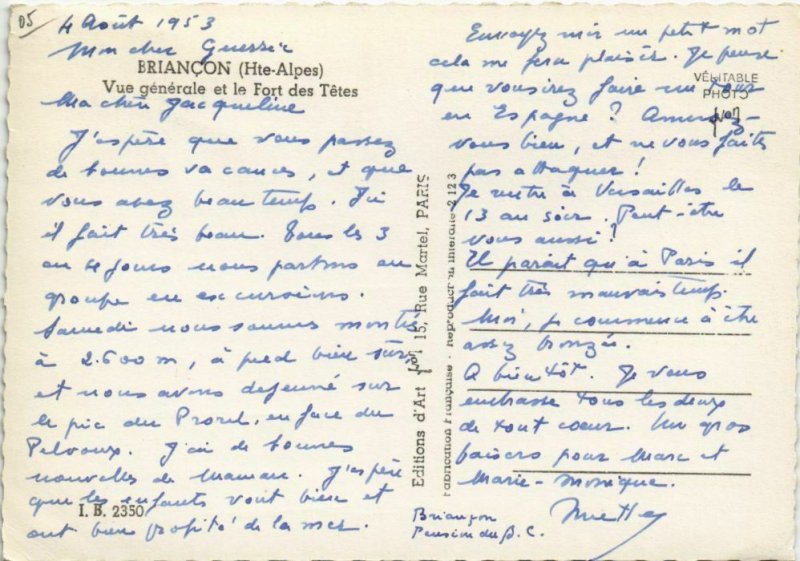 05
4 Août 1953
Mon cher Guessir
BRIANÇON (Hte-Alpes)
Vue générale et le Fort des Têtes
Ma chère Jacqueline
J'espère que vous passez
de bonnes vacances, et que
vous avez beau temps. Ici
il fait très beau. Tous les 3
ou 4 jours nous partons en
groupe en excursions.
Samedi nous sommes montés
à 2.600 m, à pied bien sûr
et nous avons dejeuné sur
le pic du Prorel, en face du
Pelvoux. J'ai de bonnes
nouvelles de Maman. J'espère
que les enfants vont bien et
I. B. 2350
ont bien profité de la mer.
Editions d'Art Yvon 15, Rue Martel, PARIS
Fabrication Française - Reproduction interdite 2 123
Envoyez moi un petit mot
cela me fera plaisir. Je pense
VÉRITABLE
PHOTO
Yvon
que vous irez faire un tour
en Espagne ? Amusez-
vous bien, et ne vous faites
pas attaquer !
Je rentre à Versailles le
13 au soir. Peut-être
vous aussi ?
Il parait qu'à Paris il
fait très mauvais temps.
Moi, je commence à être
assez bronzée.
A bientôt. Je vous
embrasse tous les deux
de tout coeur. Un gros
baisers pour Marc et
Marie-Monique.
Briançon
Pension du B.C.